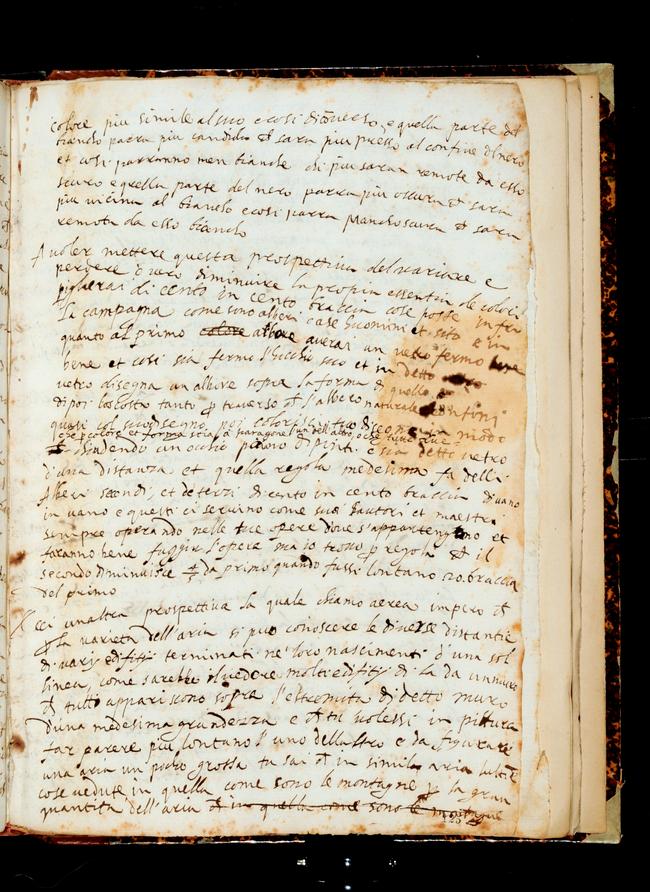 colore piu simile al suo e cosi di converso, e quella parte del
biancho parra piu candida ch sara piu presso al confine del nero
et cosi parranno men bianche chi piu saran remote da esso
scuro e quella parte del nero parra piu oscura ch sara
piu vicina al biancho e cosi parra manchoscura ch sara
remota da esso biancho
A voler mettere questa prospettiva del variare e
perdere o vero diminuire la propia essentia de colori
pigherai di cento in cento braccia cose poste infra
la campagna come sono alberi case huomini et sito e in
quanto al primo colore albore averai un vetro fermo bene
bene et cosi sia fermo l'occhio tuo et in detto
vetro disegna un albire sopra la forma di quello
di poi loscosta tanto p traverso ch l'albero naturale confini
quasi col tuo disegno poi colorisci il tuo disegno in modo
che p colore et forma stia a paragone l'un dell'altro o che tutti due
chiudendo un occhio paino dipinti e sia detto vetro
d'una distanza et quella regola medesima fa delli
Alberi secondi, et de terzi di cento in cento braccia di vano
in vano e questi ti servino come suoi hautori et maestri
sempre operando nelle tue opere dove s'appartengono et
faranno bene fuggir l'opere ma io trovo p regola ch il
secondo diminuisce 4/5 da primo quando fussi lontano 20. braccia
del primo
Ecci unaltra prospettiva la quale chiamo aerea impero ch
p la varieta dell'aria si puo conoscere le diverse distantie
di varij edifitij terminati ne' loro nascimenti d'una sol
linea, come sarebbe il vedere molti edifitij di la da un muro
ch tutti appariscono sopra l'estremita di detto muro
d'una medesima grandezza e ch tu volessi in pittura
far parere piu lontano l'uno dell altro e da figurare
una aria un pocho grossa tu sai ch in simil aria lultime
cose vedute in quella come sono le montagne p la gran
quantita dell'aria ch in quella come sono le montagne